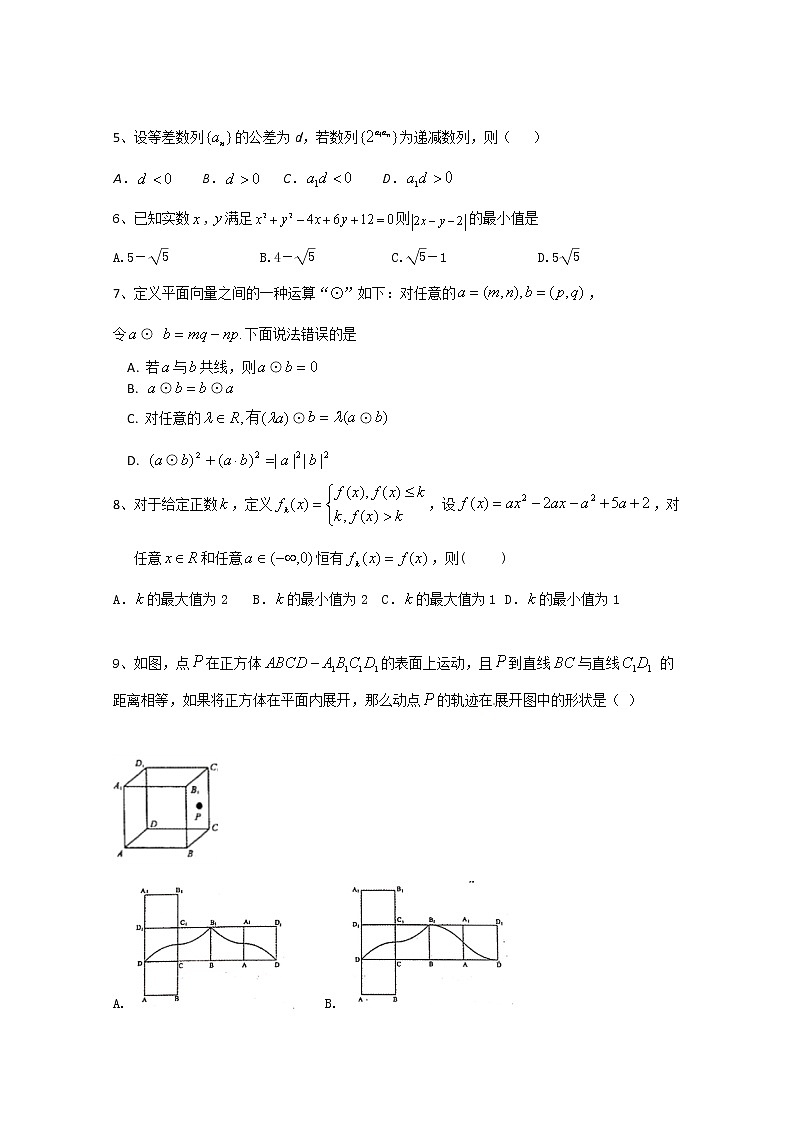 5、设等差数列{aₙ}的公差为 d，若数列{2^{a₁aₙ}}为递减数列，则（ ）
A. d < 0 B. d > 0 C. a₁d < 0 D. a₁d > 0
6、已知实数 x，y满足 x² + y² − 4x + 6y + 12 = 0则|2x − y − 2|的最小值是
A.5－√5 B.4－√5 C.√5－1 D.5√5
7、定义平面向量之间的一种运算“⊙”如下：对任意的a = (m,n),b = (p,q)，
令a⊙ b = mq − np.下面说法错误的是
A. 若a与b共线，则a⊙b = 0
B. a⊙b = b⊙a
C. 对任意的λ∈R,有(λa)⊙b = λ(a⊙b)
D. (a⊙b)² + (a·b)² =|a|²|b|²
8、对于给定正数k，定义 fₖ(x) = { f(x), f(x) ≤ k
k, f(x) > k ，设 f(x) = ax² − 2ax − a² + 5a + 2，对
任意 x∈R和任意a∈(−∞,0)恒有 fₖ(x) = f(x)，则( )
A. k的最大值为 2 B. k的最小值为 2 C. k的最大值为 1 D. k的最小值为 1
9、如图，点P在正方体 ABCD − A₁B₁C₁D₁的表面上运动，且P到直线BC与直线C₁D₁ 的
距离相等，如果将正方体在平面内展开，那么动点 P的轨迹在展开图中的形状是（ ）
D₁ C₁
A₁ B₁
P
D C
A B
A₁ B₁ A₁ B₁
D₁ C₁ B₁ A₁ D₁ D₁ C₁ B₁ A₁ D₁
D C B A D D C B A D
A B A B
A. B.